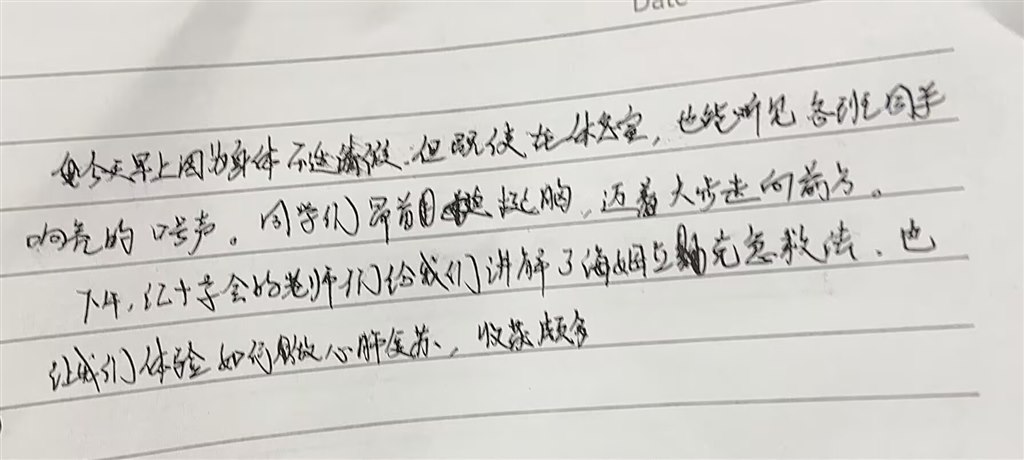 Date
今天早上因为身体不适请假,但既使在休息室,也能听见各班同学
响亮的口号声。同学们昂首挺胸,迈着大步走向前方。
下午,红十字会的老师们给我们讲解了海姆立克急救法,也
让我们体验如何做心肺复苏,收获颇多